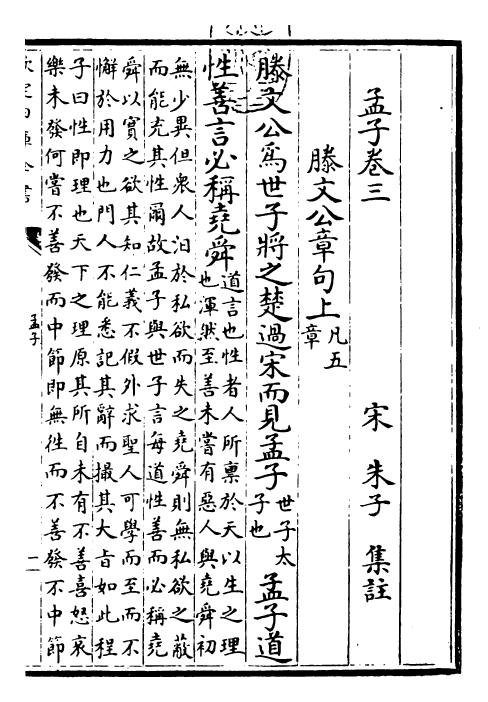 孟子卷三 宋 朱子 集註
滕文公章句上 凡五
章
滕文公爲世子將之楚過宋而見孟子 世子太
子也 孟子道
性善言必稱堯舜 道言也性者人所稟於天以生之理
也渾然至善未嘗有惡人與堯舜初
無少異但衆人汨於私欲而失之堯舜則無私欲之蔽
而能充其性爾故孟子與世子言每道性善而必稱堯
舜以實之欲其知仁義不假外求聖人可學而至而不
懈於用力也門人不能悉記其辭而撮其大旨如此程
子曰性即理也天下之理原其所自未有不善喜怒哀
樂未發何嘗不善發而中節即無徃而不善發不中節
孟子
一